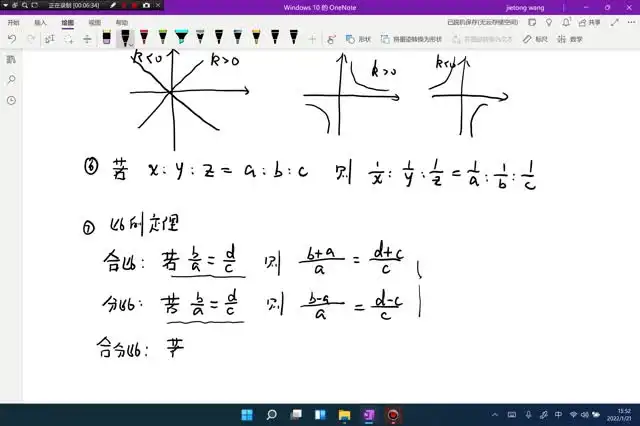 正在录制 [00:06:34]
Windows 10 的 OneNote
jietong wang
文件 开始 插入 绘图 视图 帮助
已脱机保存(无云存储空间) 共享
形状 将墨迹转换为形状 标尺 数学
k<0 k>0 k>0 k<0
⑥ 若 x:y:z = a:b:c 则 1/x : 1/y : 1/z = 1/a : 1/b : 1/c
⑦ 比例定理
合比: 若 b/a = d/c 则 (b+a)/a = (d+c)/c
分比: 若 b/a = d/c 则 (b-a)/a = (d-c)/c
合分比: 若
中 15:52
2022/1/21